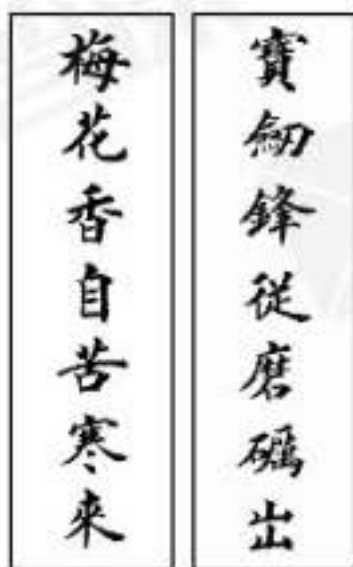 寶劒鋒從磨礪出
梅花香自苦寒來